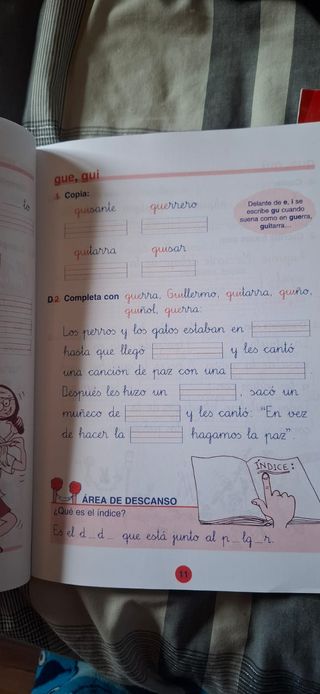 gue, gui
1. Copia:
guisante guerrero
Delante de e, i se
escribe gu cuando
suena como en guerra,
guitarra...
guitarra guisar
D.2 Completa con guerra, Guillermo, guitarra, guiño,
guiñol, guerra:
Los perros y los gatos estaban en
hasta que llegó y les cantó
una canción de paz con una
Después les hizo un , sacó un
muñeco de y les cantó: "En vez
de hacer la hagamos la paz".
ÍNDICE:
ÁREA DE DESCANSO
¿Qué es el índice?
Es el d__d_ que está junto al p_lg_r.
11